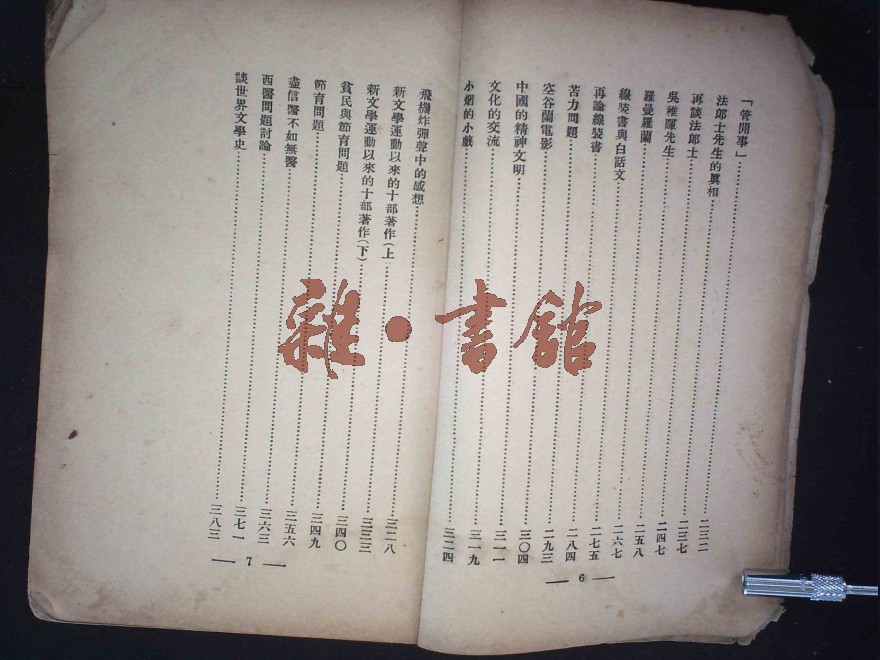 「管閒事」……二三二
法郎士先生的眞相……二三七
再談法郎士……二四七
吳稚暉先生……二五八
羅曼羅蘭……二六七
線裝書與白話文……二七五
再論線裝書……二八四
苦力問題……二九三
空谷蘭電影……三〇四
中國的精神文明……三一一
文化的交流……三一九
小烟的小戲……三二四
— 6 —
飛機炸彈聲中的感想……三二八
新文學運動以來的十部著作(上……三三三
新文學運動以來的十部著作(下)……三四〇
貧民與節育問題……三四九
節育問題……三五六
盡信醫不如無醫……三六三
西醫問題討論……三七一
談世界文學史……三八三
— 7 —
雜·書館